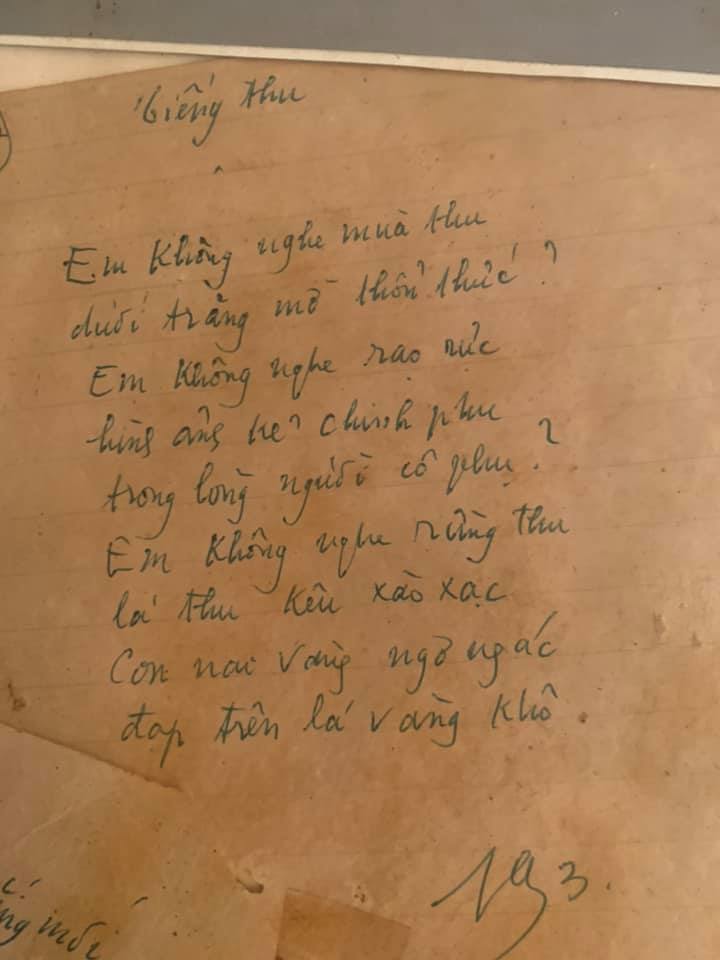 Tiếng thu
Em không nghe mùa thu
dưới trăng mờ thổn thức?
Em không nghe rạo rực
hình ảnh kẻ chinh phu
trong lòng người cô phụ?
Em không nghe rừng thu
lá thu kêu xào xạc
Con nai vàng ngơ ngác
đạp trên lá vàng khô.
mối